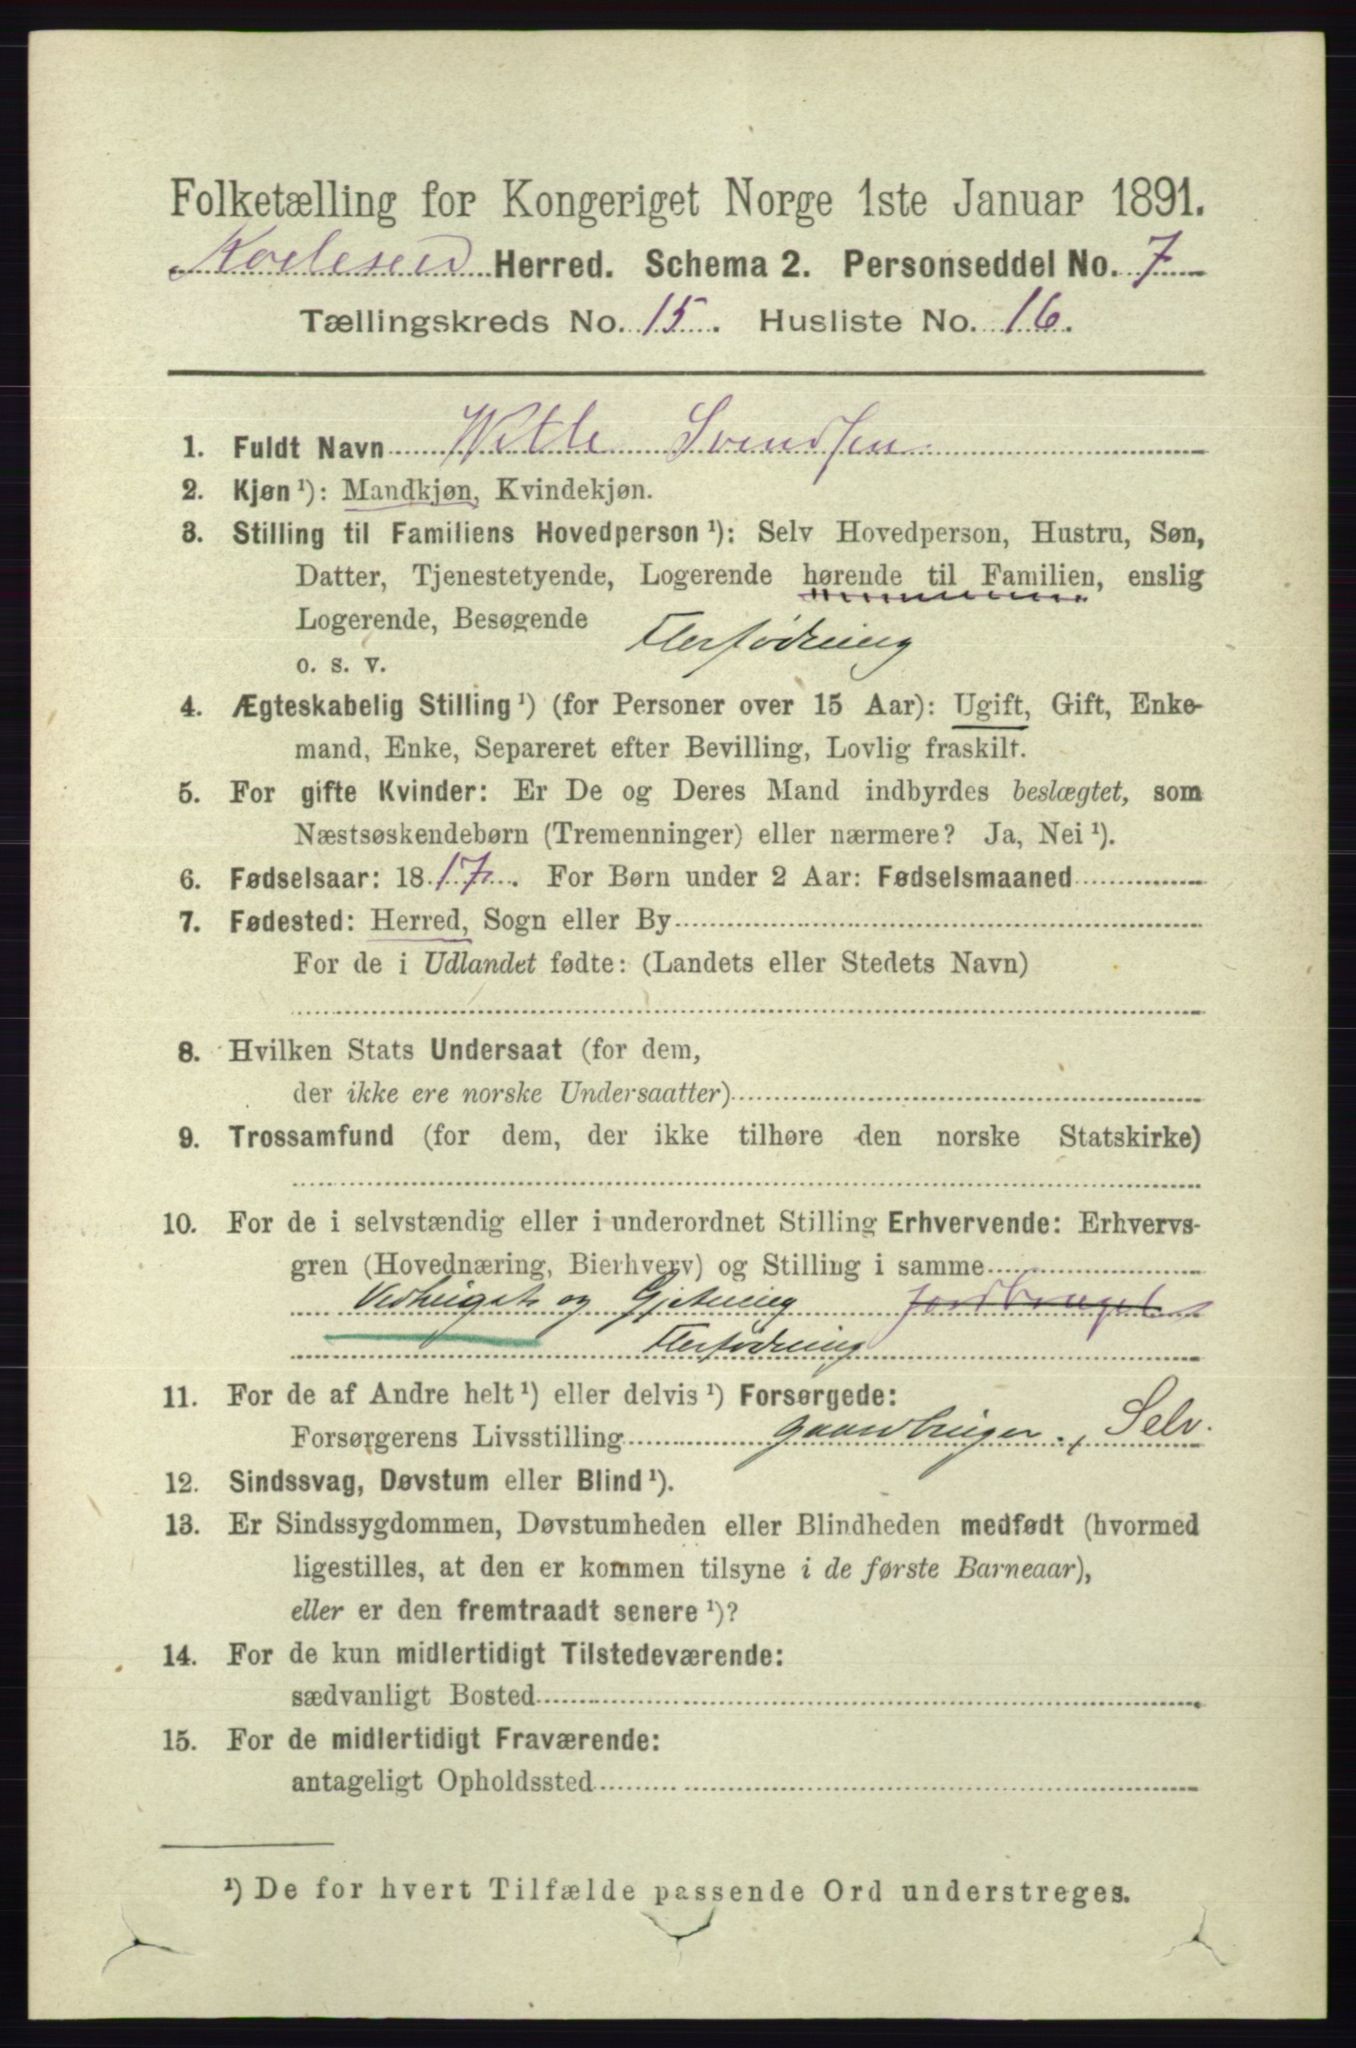 Folketælling for Kongeriget Norge 1ste Januar 1891.
Herred. Schema 2. Personseddel No. 7
Tællingskreds No. 15. Husliste No. 16.
1. Fuldt Navn Wetle Svendsen
2. Kjøn ¹): Mandkjøn, Kvindekjøn.
3. Stilling til Familiens Hovedperson ¹): Selv Hovedperson, Hustru, Søn,
Datter, Tjenestetyende, Logerende hørende til Familien, enslig
Logerende, Besøgende
o. s. v.
4. Ægteskabelig Stilling ¹) (for Personer over 15 Aar): Ugift, Gift, Enke-
mand, Enke, Separeret efter Bevilling, Lovlig fraskilt.
5. For gifte Kvinder: Er De og Deres Mand indbyrdes beslægtet, som
Næstsøskendebørn (Tremenninger) eller nærmere? Ja, Nei ¹).
6. Fødselsaar: 1817. For Børn under 2 Aar: Fødselsmaaned
7. Fødested: Herred, Sogn eller By
For de i Udlandet fødte: (Landets eller Stedets Navn)
8. Hvilken Stats Undersaat (for dem,
der ikke ere norske Undersaatter)
9. Trossamfund (for dem, der ikke tilhøre den norske Statskirke)
10. For de i selvstændig eller i underordnet Stilling Erhvervende: Erhvervs-
gren (Hovednæring, Bierhverv) og Stilling i samme
Vedhugst og Gjetning
11. For de af Andre helt ¹) eller delvis ¹) Forsørgede:
Forsørgerens Livsstilling gaardbruger, Selv.
12. Sindssvag, Døvstum eller Blind ¹).
13. Er Sindssygdommen, Døvstumheden eller Blindheden medfødt (hvormed
ligestilles, at den er kommen tilsyne i de første Barneaar),
eller er den fremtraadt senere ¹)?
14. For de kun midlertidigt Tilstedeværende:
sædvanligt Bosted
15. For de midlertidigt Fraværende:
antageligt Opholdssted
¹) De for hvert Tilfælde passende Ord understreges.